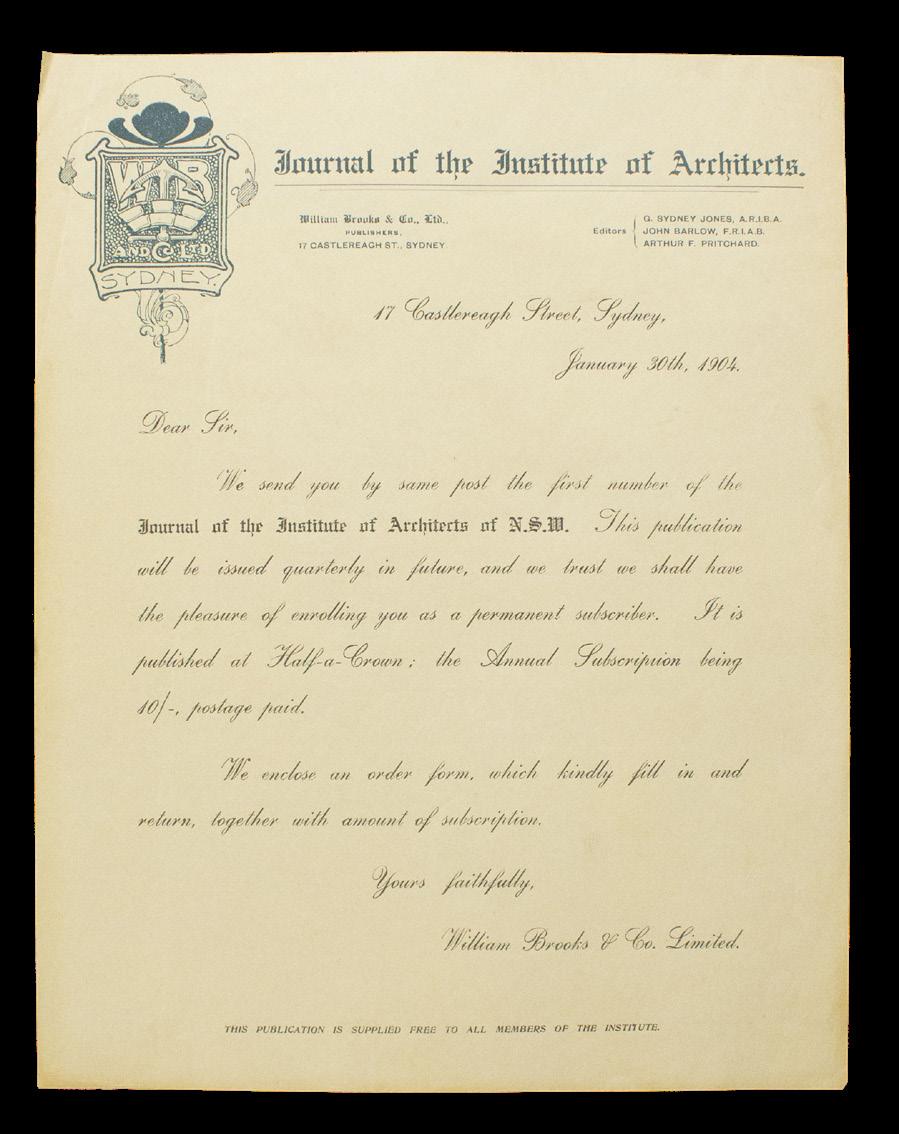 WB
AND Co LTD
SYDNEY.
Journal of the Institute of Architects.
William Brooks & Co., Ltd.,
PUBLISHERS,
17 CASTLEREAGH ST., SYDNEY
Editors
G. SYDNEY JONES, A.R.I.B.A.
JOHN BARLOW, F.R.I.A.B.
ARTHUR F. PRITCHARD.
17 Castlereagh Street, Sydney,
January 30th, 1904.
Dear Sir,
We send you by same post the first number of the
Journal of the Institute of Architects of N.S.W. This publication
will be issued quarterly in future, and we trust we shall have
the pleasure of enrolling you as a permanent subscriber. It is
published at Half-a-Crown; the Annual Subscription being
10/-, postage paid.
We enclose an order form, which kindly fill in and
return, together with amount of subscription.
Yours faithfully,
William Brooks & Co. Limited.
THIS PUBLICATION IS SUPPLIED FREE TO ALL MEMBERS OF THE INSTITUTE.